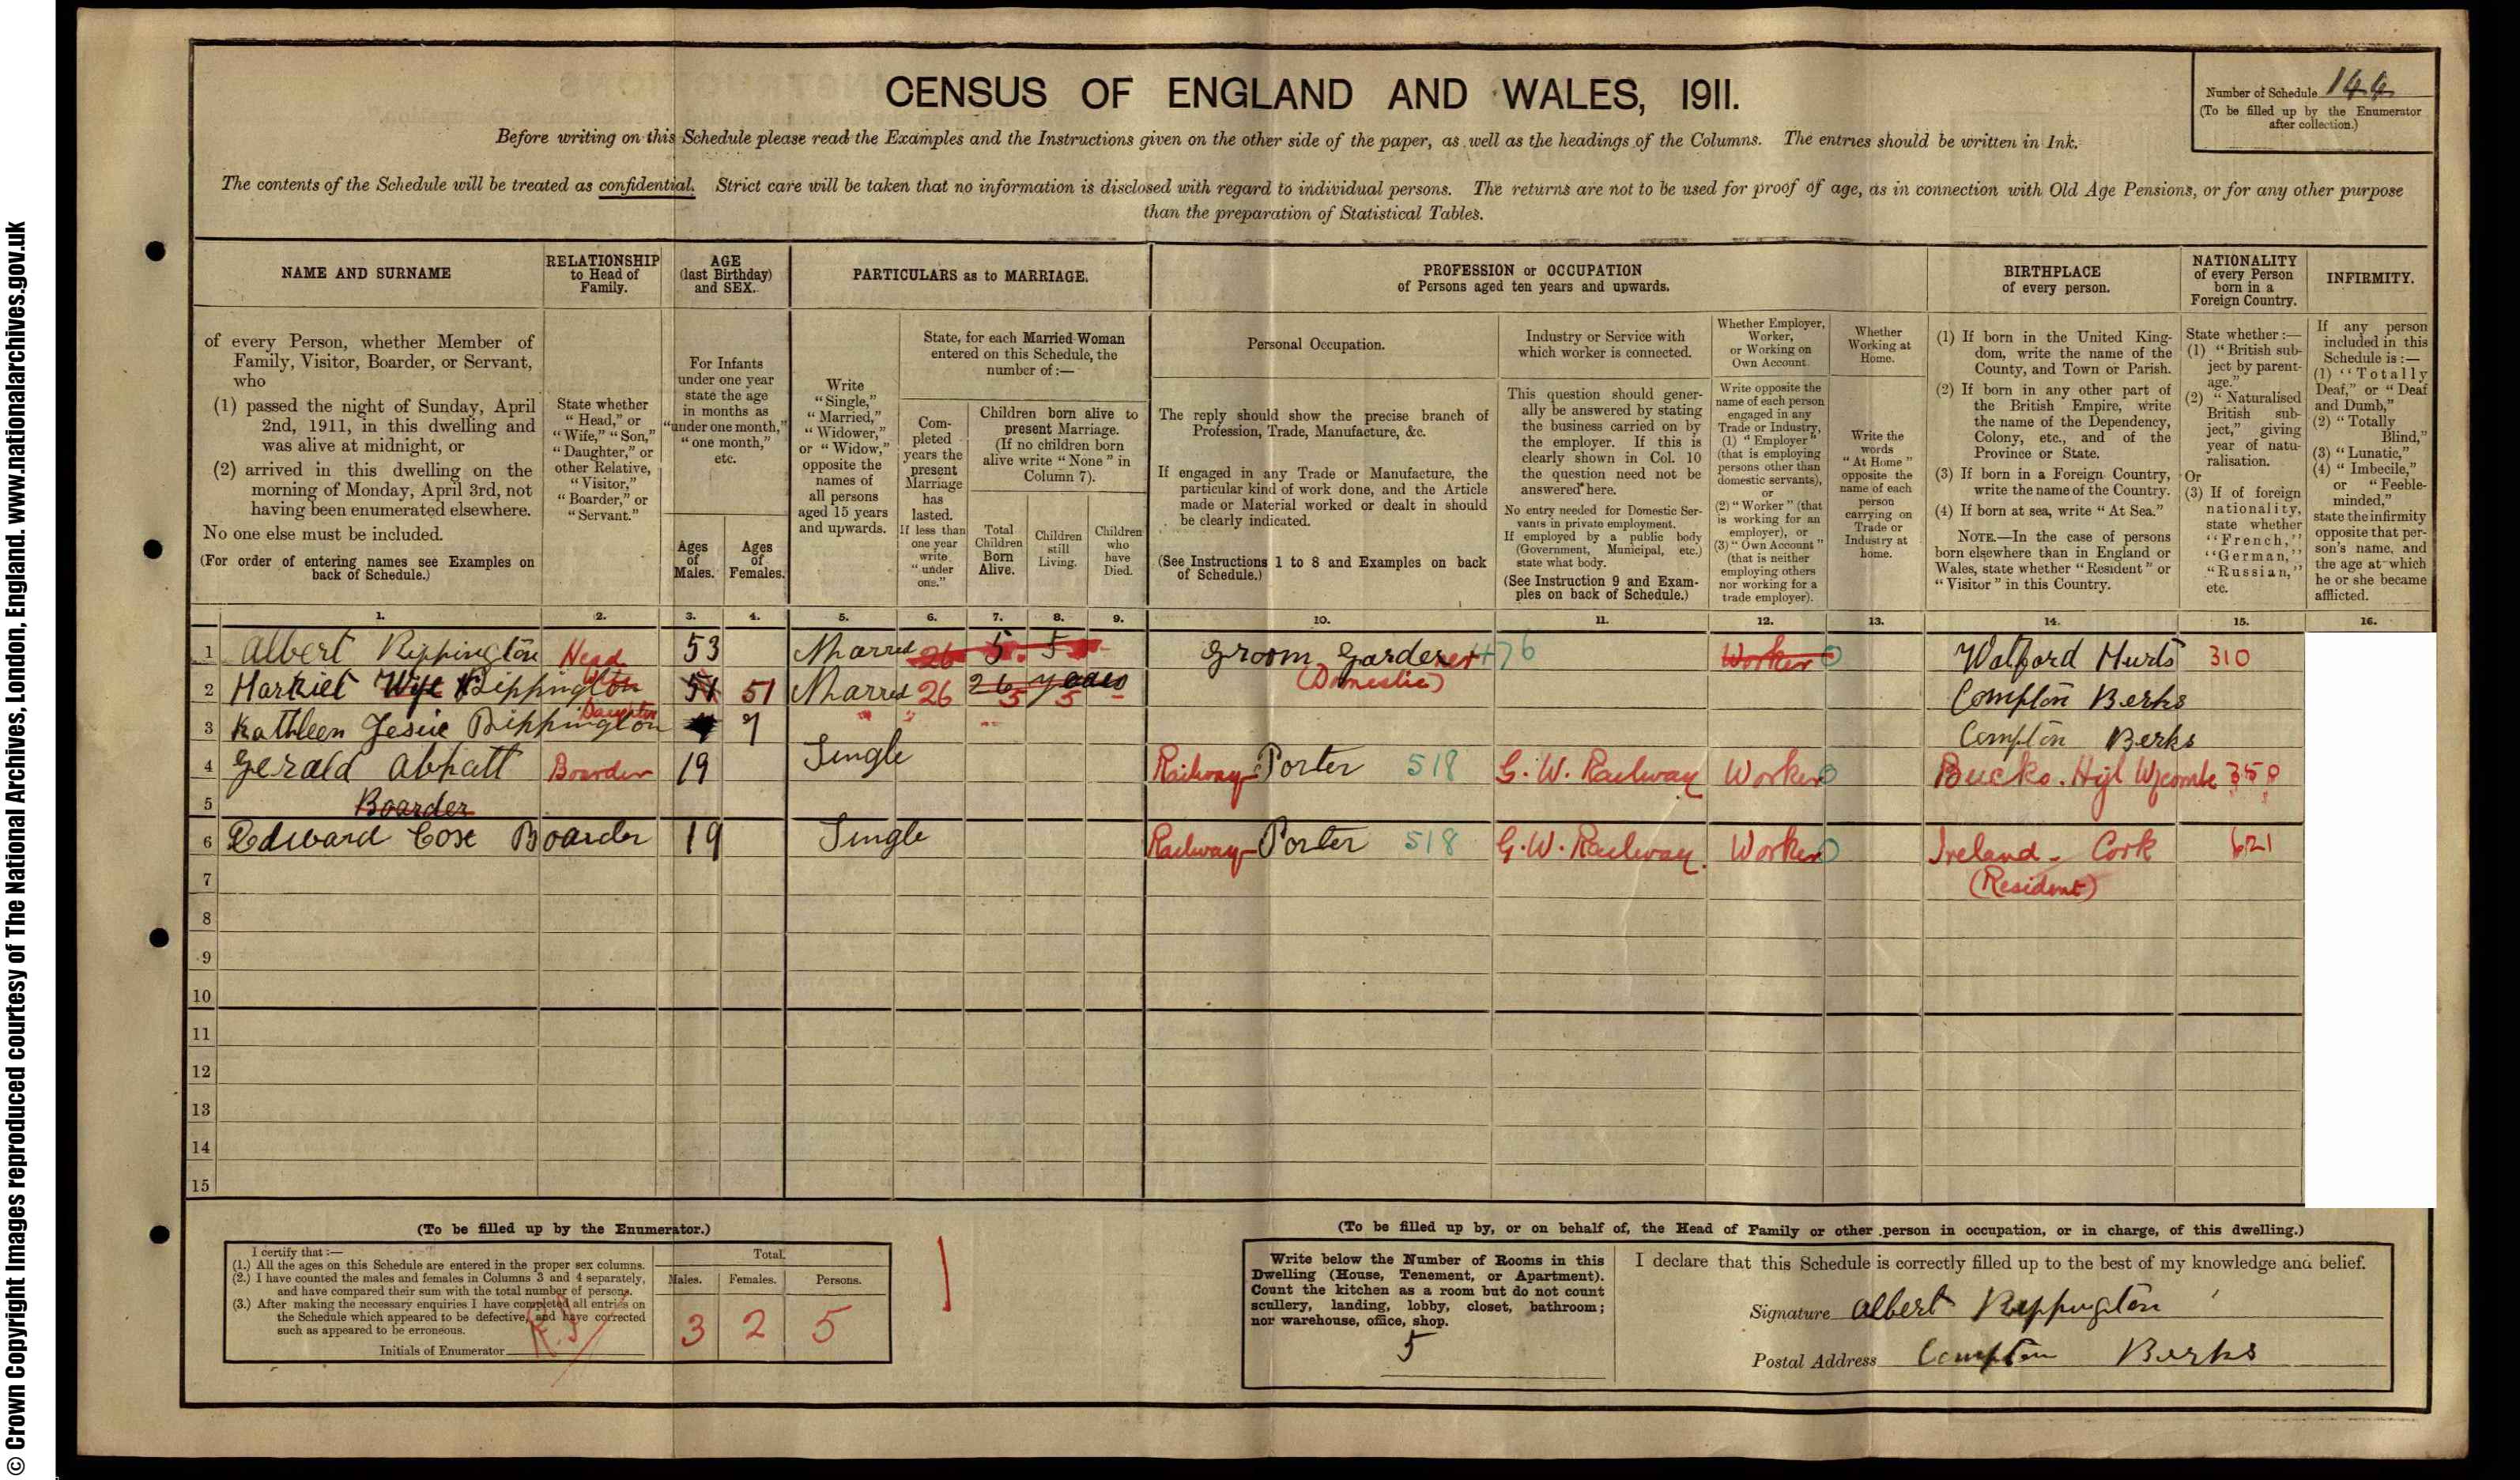 CENSUS OF ENGLAND AND WALES, 1911.
Number of Schedule 144
(To be filled up by the Enumerator
after collection.)
Before writing on this Schedule please read the Examples and the Instructions given on the other side of the paper, as well as the headings of the Columns. The entries should be written in Ink.
The contents of the Schedule will be treated as confidential. Strict care will be taken that no information is disclosed with regard to individual persons. The returns are not to be used for proof of age, as in connection with Old Age Pensions, or for any other purpose
than the preparation of Statistical Tables.
NAME AND SURNAME
of every Person, whether Member of
Family, Visitor, Boarder, or Servant,
who
(1) passed the night of Sunday, April
2nd, 1911, in this dwelling and
was alive at midnight, or
(2) arrived in this dwelling on the
morning of Monday, April 3rd, not
having been enumerated elsewhere.
No one else must be included.
(For order of entering names see Examples on
back of Schedule.)
RELATIONSHIP
to Head of
Family.
State whether
"Head," or
"Wife," "Son,"
"Daughter," or
other Relative,
"Visitor,"
"Boarder," or
"Servant."
AGE
(last Birthday)
and SEX.
For Infants
under one year
state the age
in months as
"under one month,"
"one month,"
etc.
Ages
of
Males.
Ages
of
Females.
PARTICULARS as to MARRIAGE.
Write
"Single,"
"Married,"
"Widower,"
or "Widow,"
opposite the
names of
all persons
aged 15 years
and upwards.
State, for each Married Woman
entered on this Schedule, the
number of:—
Com-
pleted
years the
present
Marriage
has
lasted.
If less than
one year
write
"under
one."
Children born alive to
present Marriage.
(If no children born
alive write "None" in
Column 7).
Total
Children
Born
Alive.
Children
still
Living.
Children
who
have
Died.
PROFESSION or OCCUPATION
of Persons aged ten years and upwards.
Personal Occupation.
The reply should show the precise branch of
Profession, Trade, Manufacture, &c.
If engaged in any Trade or Manufacture, the
particular kind of work done, and the Article
made or Material worked or dealt in should
be clearly indicated.
(See Instructions 1 to 8 and Examples on back
of Schedule.)
Industry or Service with
which worker is connected.
This question should gener-
ally be answered by stating
the business carried on by
the employer. If this is
clearly shown in Col. 10
the question need not be
answered here.
No entry needed for Domestic Ser-
vants in private employment.
If employed by a public body
(Government, Municipal, etc.)
state what body.
(See Instruction 9 and Exam-
ples on back of Schedule.)
Whether Employer,
Worker,
or Working on
Own Account.
Write opposite the
name of each person
engaged in any
Trade or Industry,
(1) "Employer"
(that is employing
persons other than
domestic servants),
or
(2) "Worker" (that
is working for an
employer), or
(3) "Own Account"
(that is neither
employing others
nor working for a
trade employer).
Whether
Working at
Home.
Write the
words
"At Home"
opposite the
name of each
person
carrying on
Trade or
Industry at
home.
BIRTHPLACE
of every person.
(1) If born in the United King-
dom, write the name of the
County, and Town or Parish.
(2) If born in any other part of
the British Empire, write
the name of the Dependency,
Colony, etc., and of the
Province or State.
(3) If born in a Foreign Country,
write the name of the Country.
(4) If born at sea, write "At Sea."
NOTE.—In the case of persons
born elsewhere than in England or
Wales, state whether "Resident" or
"Visitor" in this Country.
NATIONALITY
of every Person
born in a
Foreign Country.
State whether:—
(1) "British sub-
ject by parent-
age."
(2) "Naturalised
British sub-
ject," giving
year of natu-
ralisation.
Or
(3) If of foreign
nationality,
state whether
"French,"
"German,"
"Russian,"
etc.
INFIRMITY.
If any person
included in this
Schedule is:—
(1) "Totally
Deaf," or "Deaf
and Dumb,"
(2) "Totally
Blind,"
(3) "Lunatic,"
(4) "Imbecile,"
or "Feeble-
minded,"
state the infirmity
opposite that per-
son's name, and
the age at which
he or she became
afflicted.
1. 2. 3. 4. 5. 6. 7. 8. 9. 10. 11. 12. 13. 14. 15. 16.
1 Albert Rippington Head 53 Married 26 5 5 Groom Gardener 476 Worker 0 Watford Hurts 310
(Domestic)
2 Harriet Wife Rippington Wife 51 51 Married 26 26 years 5 5 – Compton Berks
3 Kathleen Jesie Rippington Daughter 7 Compton Berks
4 Gerald Abhatt Boarder 19 Single Railway Porter 518 G. W. Railway Worker 0 Bucks. High Wycombe 350
5 Boarder
6 Edward Cox Boarder 19 Single Railway Porter 518 G. W. Railway Worker 0 Ireland - Cork 621
(Resident)
7
8
9
10
11
12
13
14
15
(To be filled up by the Enumerator.)
I certify that:—
(1.) All the ages on this Schedule are entered in the proper sex columns.
(2.) I have counted the males and females in Columns 3 and 4 separately,
and have compared their sum with the total number of persons.
(3.) After making the necessary enquiries I have completed all entries on
the Schedule which appeared to be defective, and have corrected
such as appeared to be erroneous.
Initials of Enumerator
Total.
Males. Females. Persons.
3 2 5
(To be filled up by, or on behalf of, the Head of Family or other person in occupation, or in charge, of this dwelling.)
Write below the Number of Rooms in this
Dwelling (House, Tenement, or Apartment).
Count the kitchen as a room but do not count
scullery, landing, lobby, closet, bathroom;
nor warehouse, office, shop.
5
I declare that this Schedule is correctly filled up to the best of my knowledge and belief.
Signature Albert Rippington
Postal Address Compton Berks
© Crown Copyright Images reproduced courtesy of The National Archives, London, England. www.nationalarchives.gov.uk